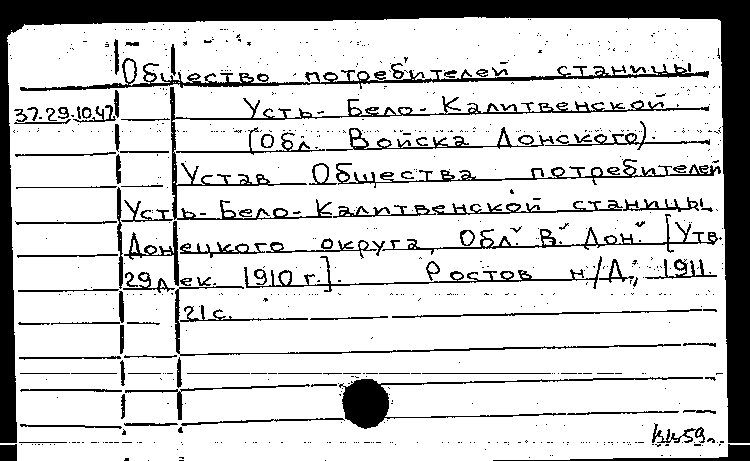 Общество потребителей станицы
37.29.10.47 Усть-Бело-Калитвенской
(Обл. Войска Донского).
Устав Общества потребителей
Усть-Бело-Калитвенской станицы
Донецкого округа, Обл. В. Дон. [Утв.
29 дек. 1910 г.]. Ростов н/Д., 1911.
21 с.